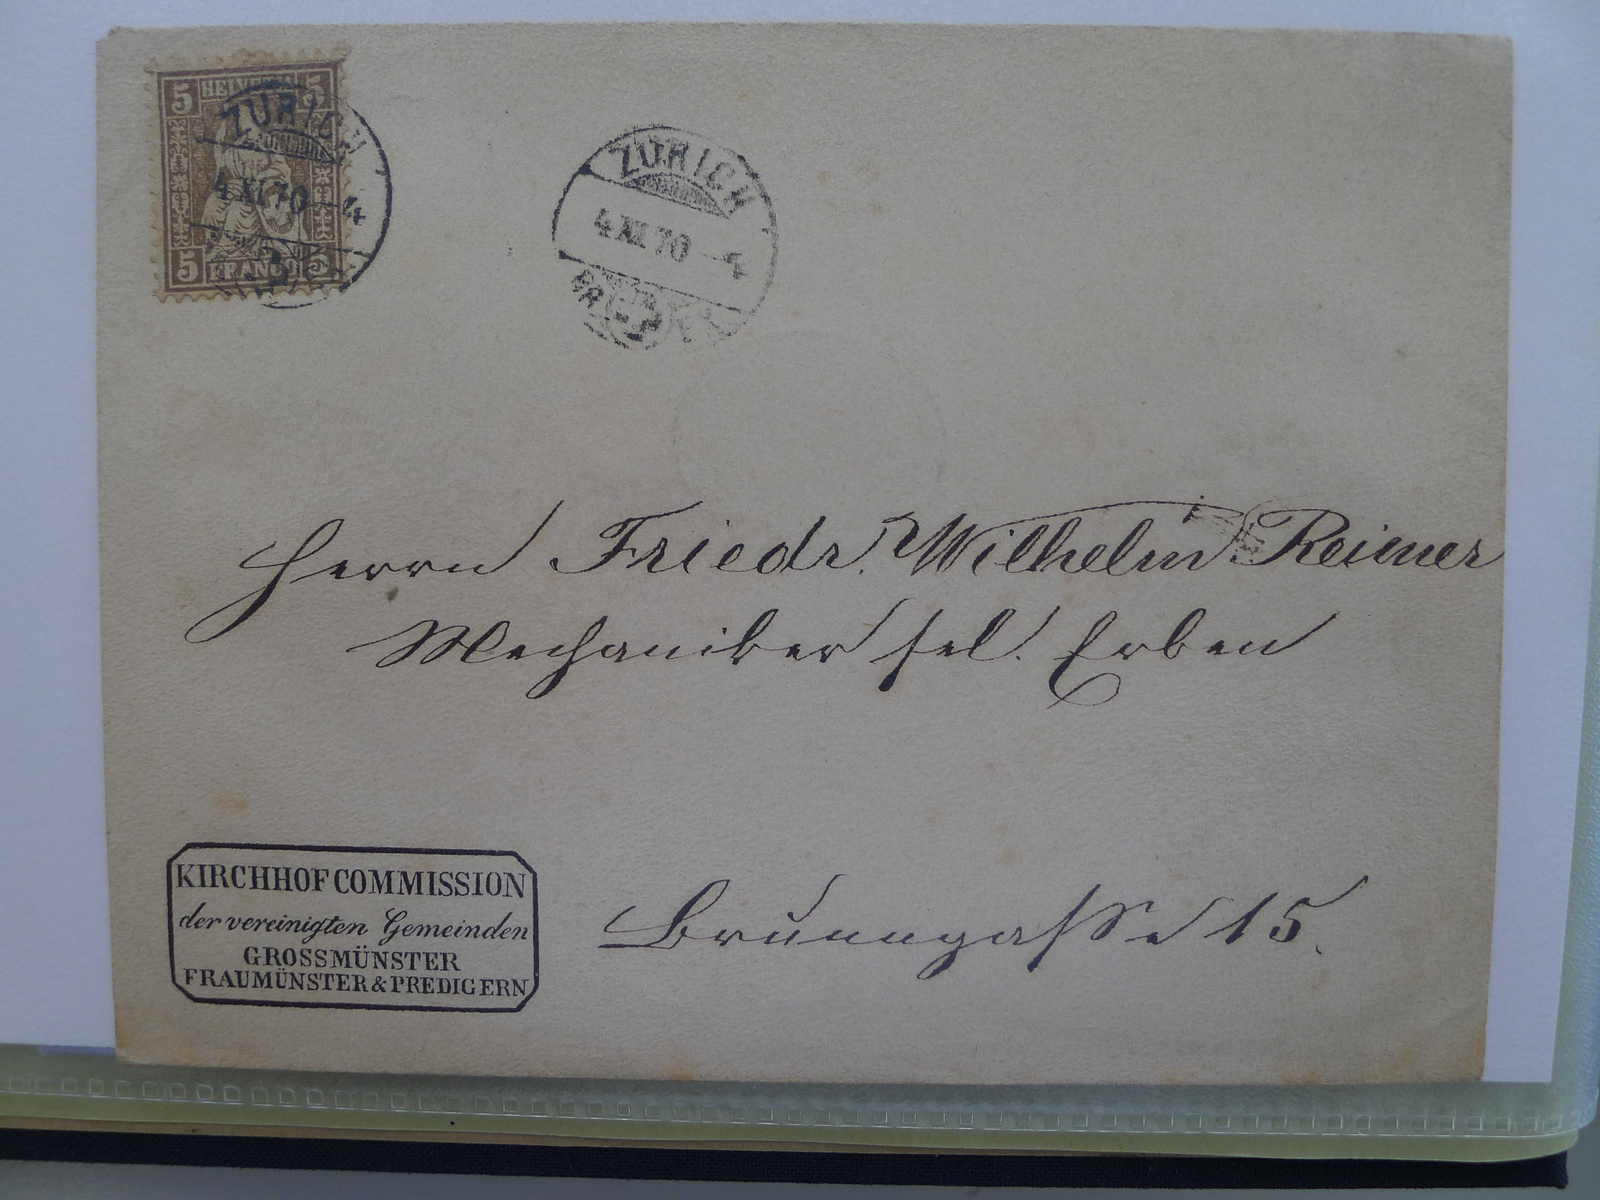 5 HELVETIA 5
5 FRANCO 5
ZÜRICH
4 XII 70 – 4
ZÜRICH
4 XII 70 – 4
Herrn Friedr. Wilhelm Reimer
Mechaniker sel. Erben
Brunngasse 15.
KIRCHHOFCOMMISSION
der vereinigten Gemeinden
GROSSMÜNSTER
FRAUMÜNSTER & PREDIGERN